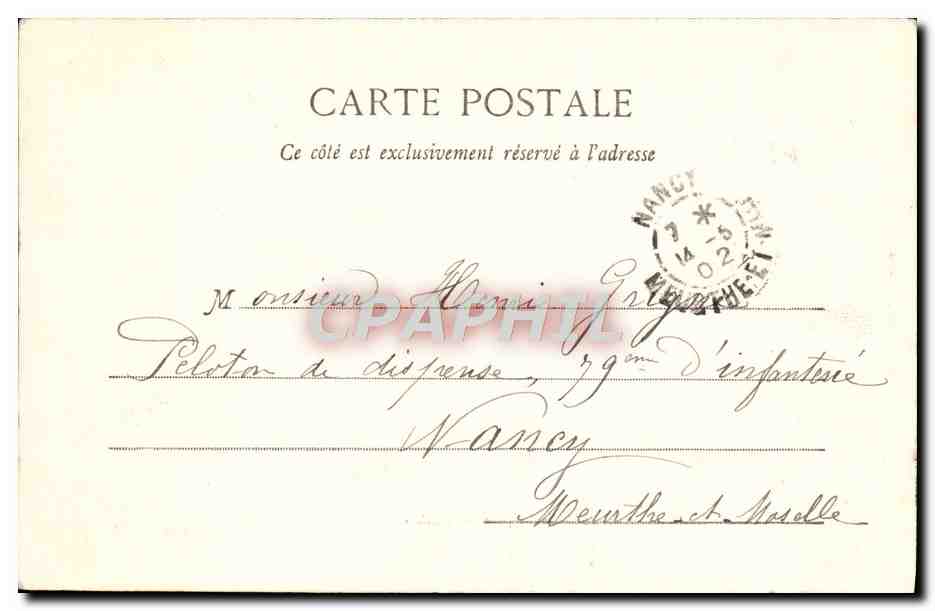 CARTE POSTALE
Ce côté est exclusivement réservé à l'adresse
NANCY
7 * 
14 -5
02
MEURTHE-ET-M
Monsieur Henri
CPAPHIL
Peloton de dispense, 79ème d'infanterie
Nancy
Meurthe-et-Moselle